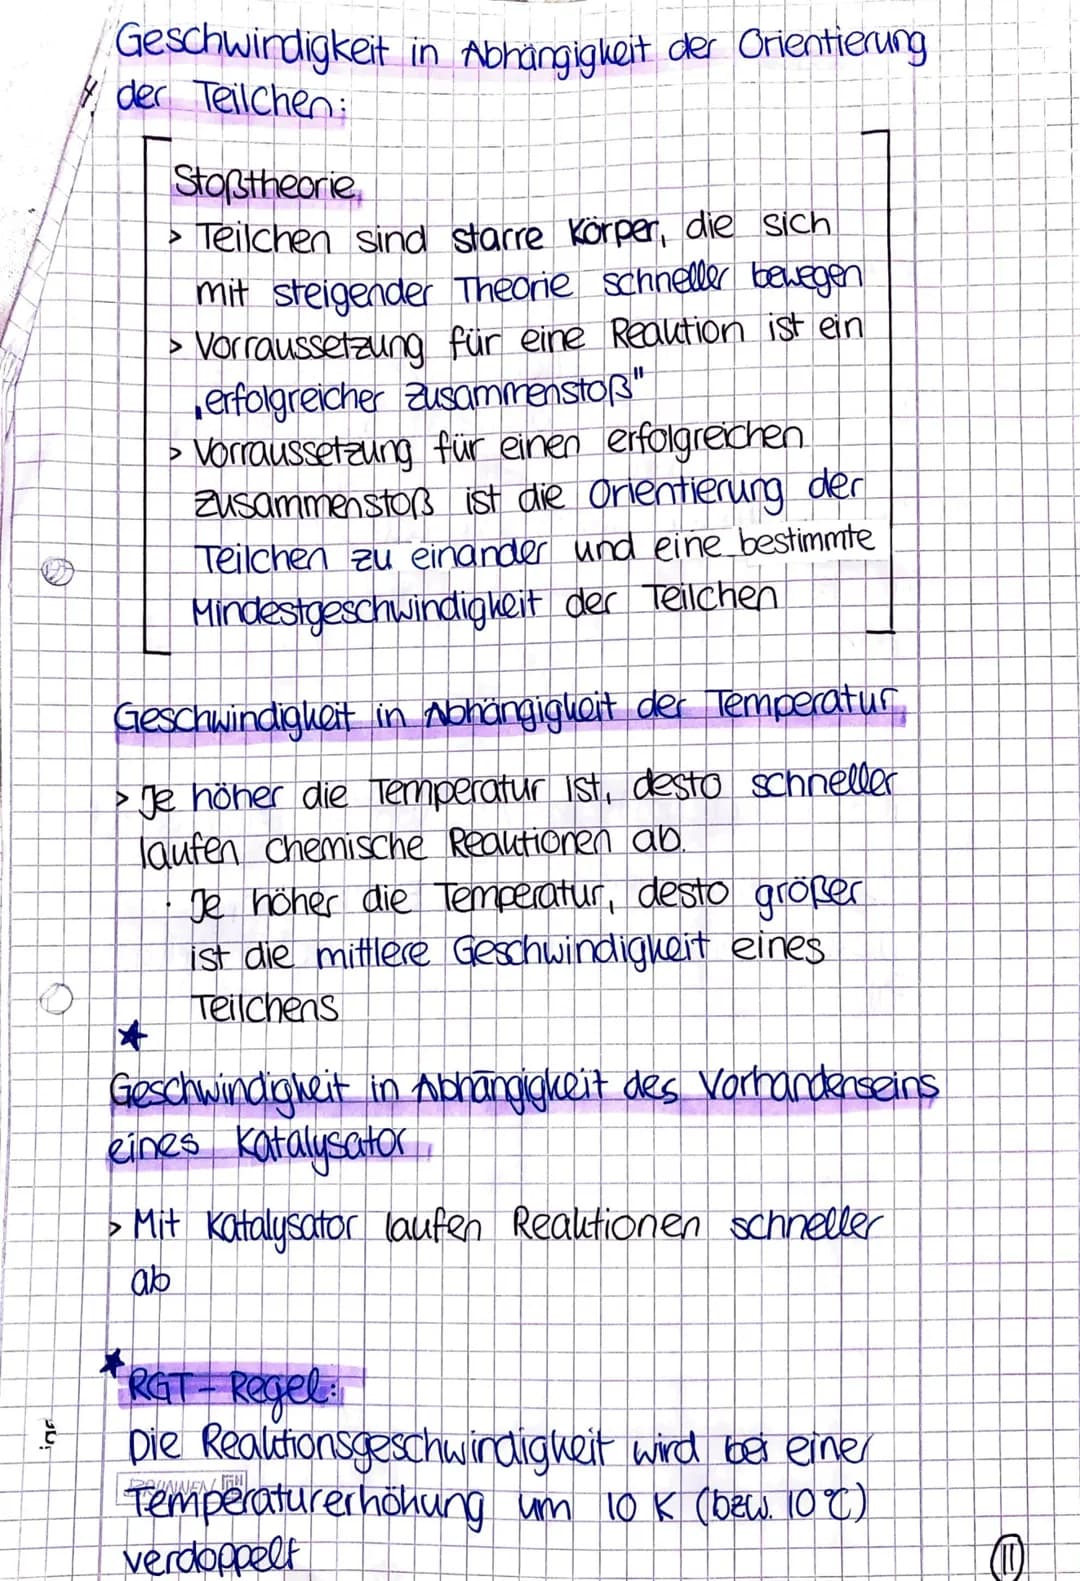 Geschwindigkeit in Abhängigkeit der Orientierung
der Teilchen:
Stoßtheorie
> Teilchen sind starre Körper, die sich
mit steigender Theorie schneller bewegen
> Vorraussetzung für eine Reaktion ist ein
„erfolgreicher Zusammenstoß"
> Vorraussetzung für einen erfolgreichen
Zusammenstoß ist die Orientierung der
Teilchen zu einander und eine bestimmte
Mindestgeschwindigkeit der Teilchen
Geschwindigkeit in Abhängigkeit der Temperatur
> Je höher die Temperatur ist, desto schneller
laufen chemische Reaktionen ab.
· Je höher die Temperatur, desto größer
ist die mittlere Geschwindigkeit eines
Teilchens
Geschwindigkeit in Abhängigkeit des Vorhandenseins
eines Katalysator
> Mit Katalysator laufen Reaktionen schneller
ab
RGT - Regel:
Die Reaktionsgeschwindigkeit wird bei einer
Temperaturerhöhung um 10 K (bzw. 10 °C)
verdoppelt
11